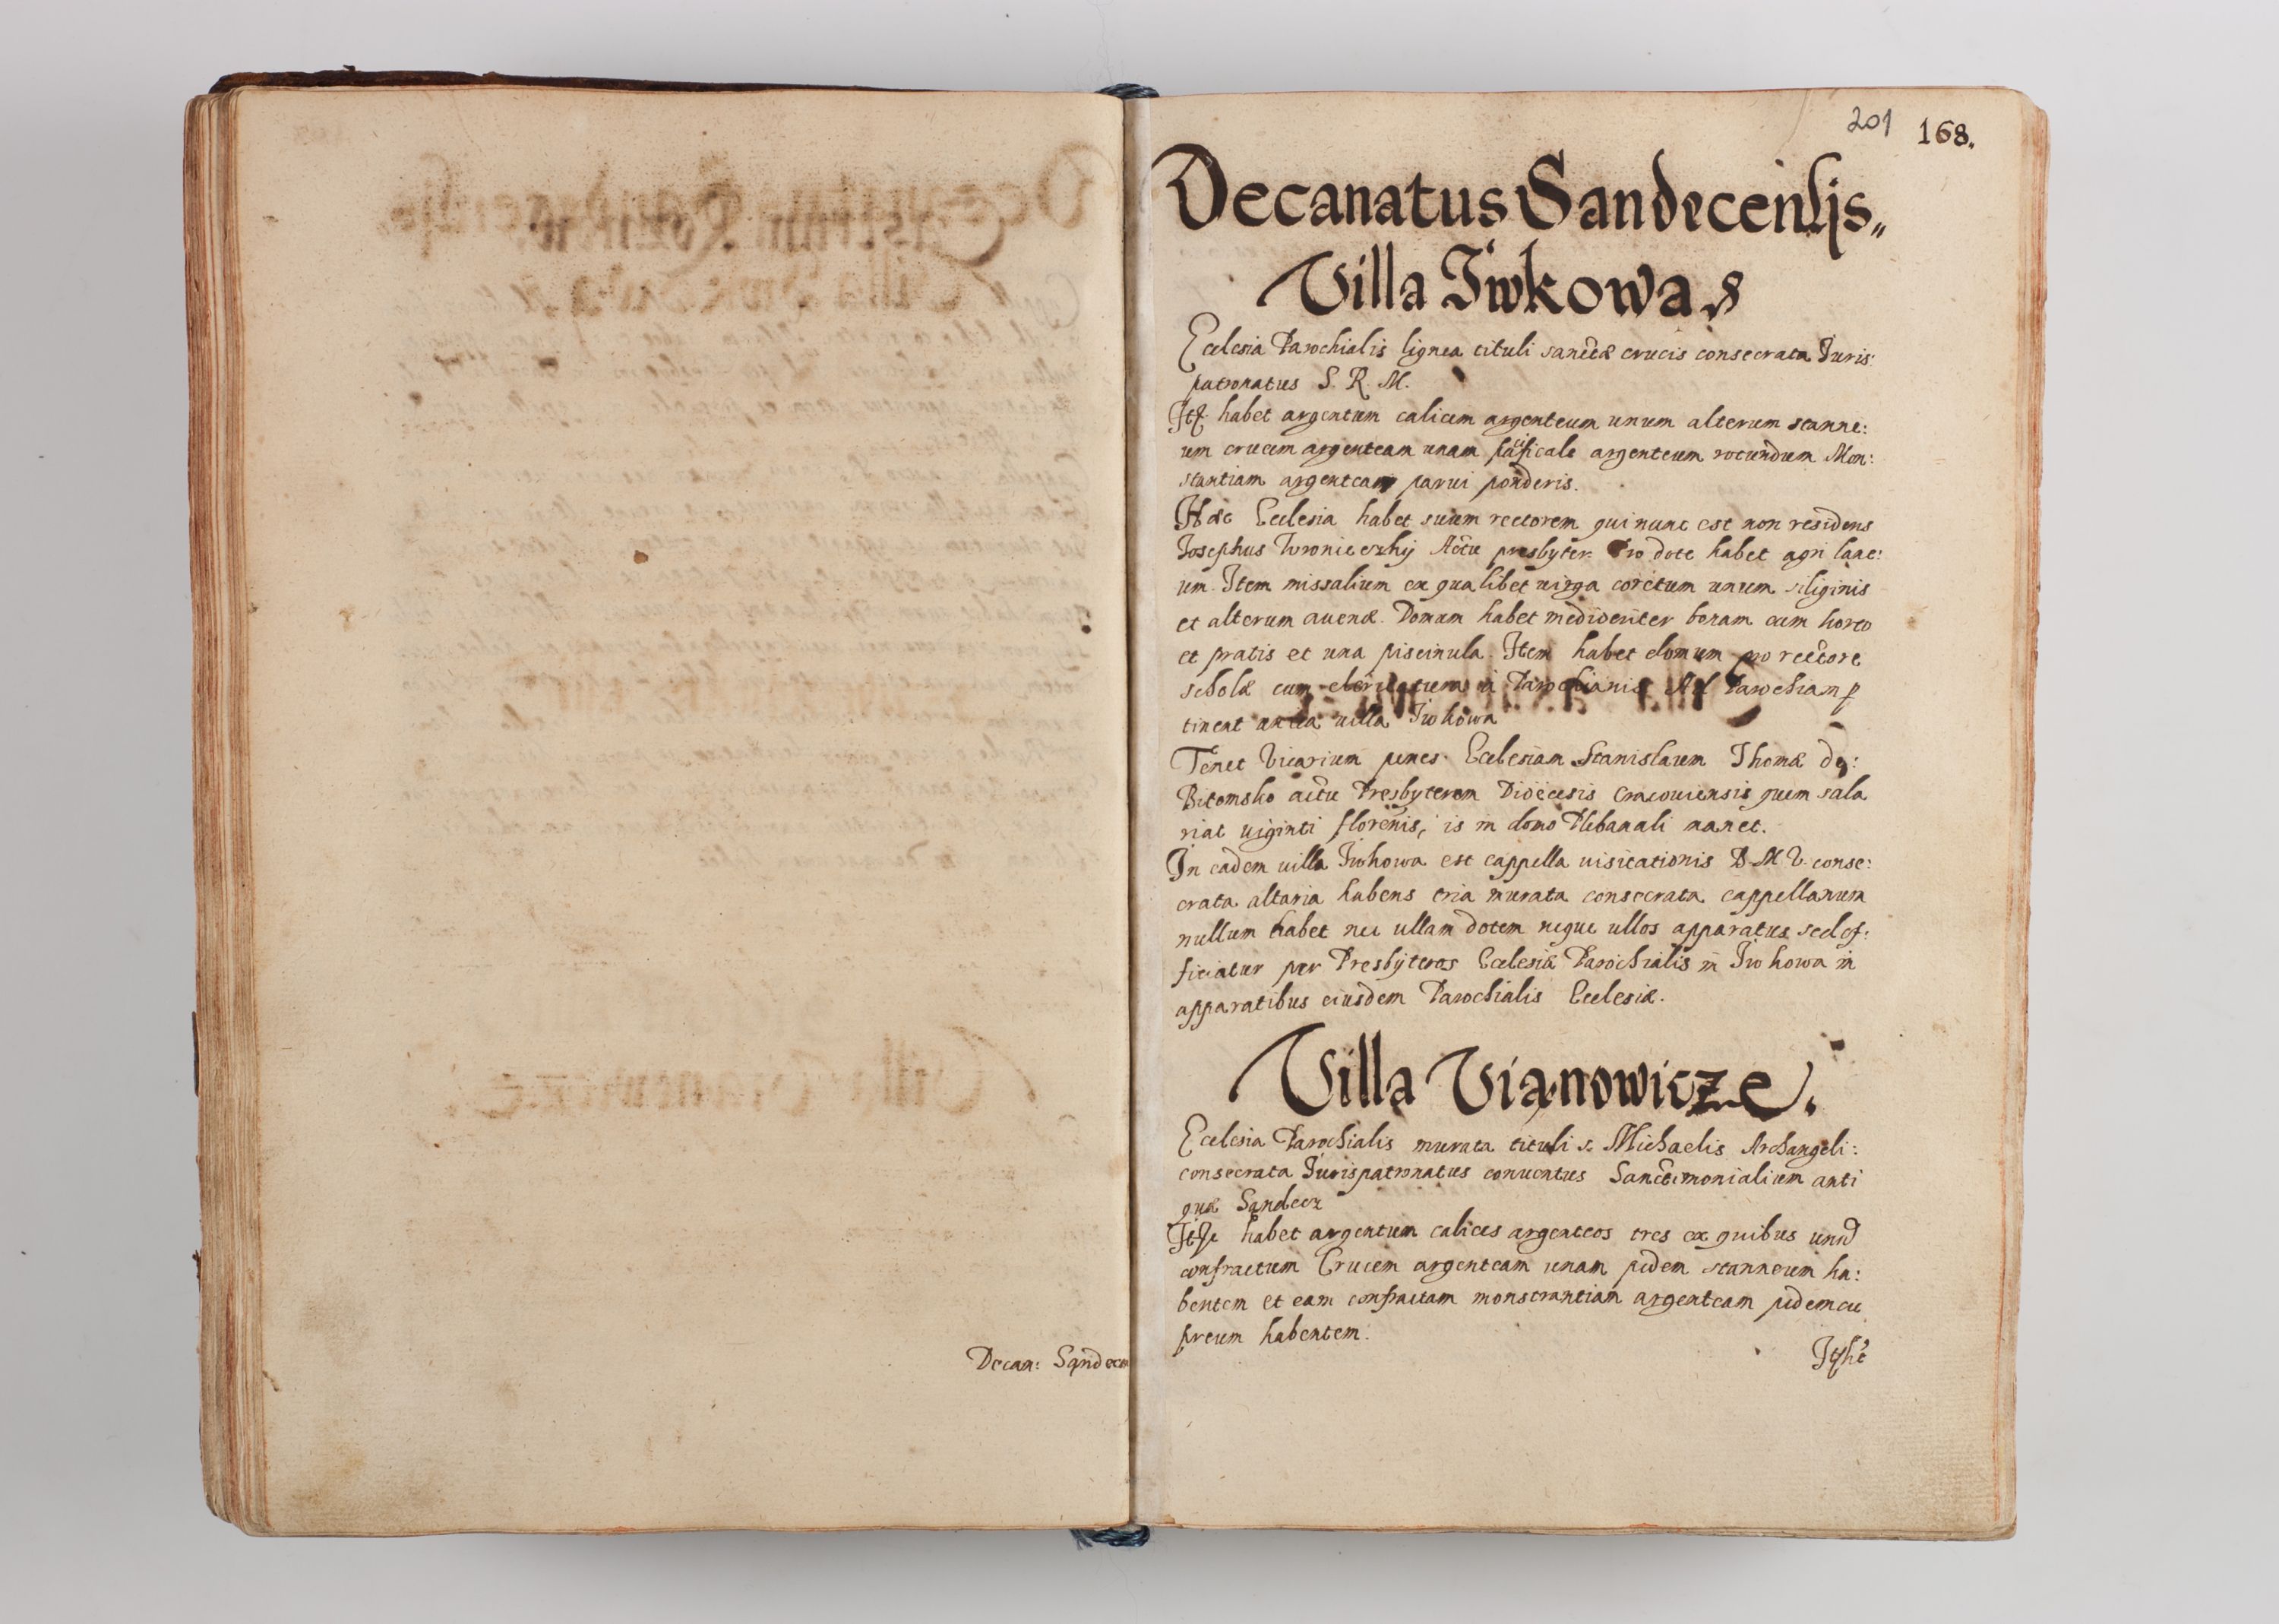 Decan: Sandecen
201 168.
Decanatus Sandecensis,,
Villa Iwkowa
Ecclesia Parochialis lignea tituli sanctæ crucis consecrata Juris
patronatus S. R. M.
habet argentum calicem argenteum unum alterum stanne:
um crucem argenteam unam pacificale argenteum rotundum Mon:
strantiam argenteam parui ponderis.
Hæc Ecclesia habet suum rectorem qui nunc est non residens
Josephus Wronieczky Actu presbyter. Pro dote habet agri lane:
um. Item missalium ex qualibet uirga coretum unum siliginis
et alterum auenæ. Domum habet mediocriter bonam cum horto
et pratis et una piscinula. Item habet domum pro rectore
scholæ cum Parochianis Ad Parochiam p
tineat villa Iwkowa
Tenet Vicarium penes Ecclesiam Stanislaum Thomæ de:
Bitomsko actu Presbyterem Diœcesis Cracouiensis quem sala
riat uiginti florenis, is in domo Plebanali manet.
In eadem uilla Iwkowa est cappella uisitationis B. M. V. conse:
crata altaria habens tria murata consecrata cappellanum
nullum habet nec ullam dotem neque ullos apparatus sed of:
ficiatur per Presbyteros Ecclesiæ Parochialis in Iwkowa in
apparatibus eiusdem Parochialis Ecclesiæ.
Villa Vianowicze.
Ecclesia Parochialis murata tituli s. Michaelis Archangeli:
consecrata Jurispatronatus conuentus Sanctimonialium anti
quæ Sandecz
habet argentum calices argenteos tres ex quibus unũ
confractum Crucem argenteam unam pedem stanneum ha:
bentem et eam confractam monstrantiam argenteam pedem cu
preum habentem.